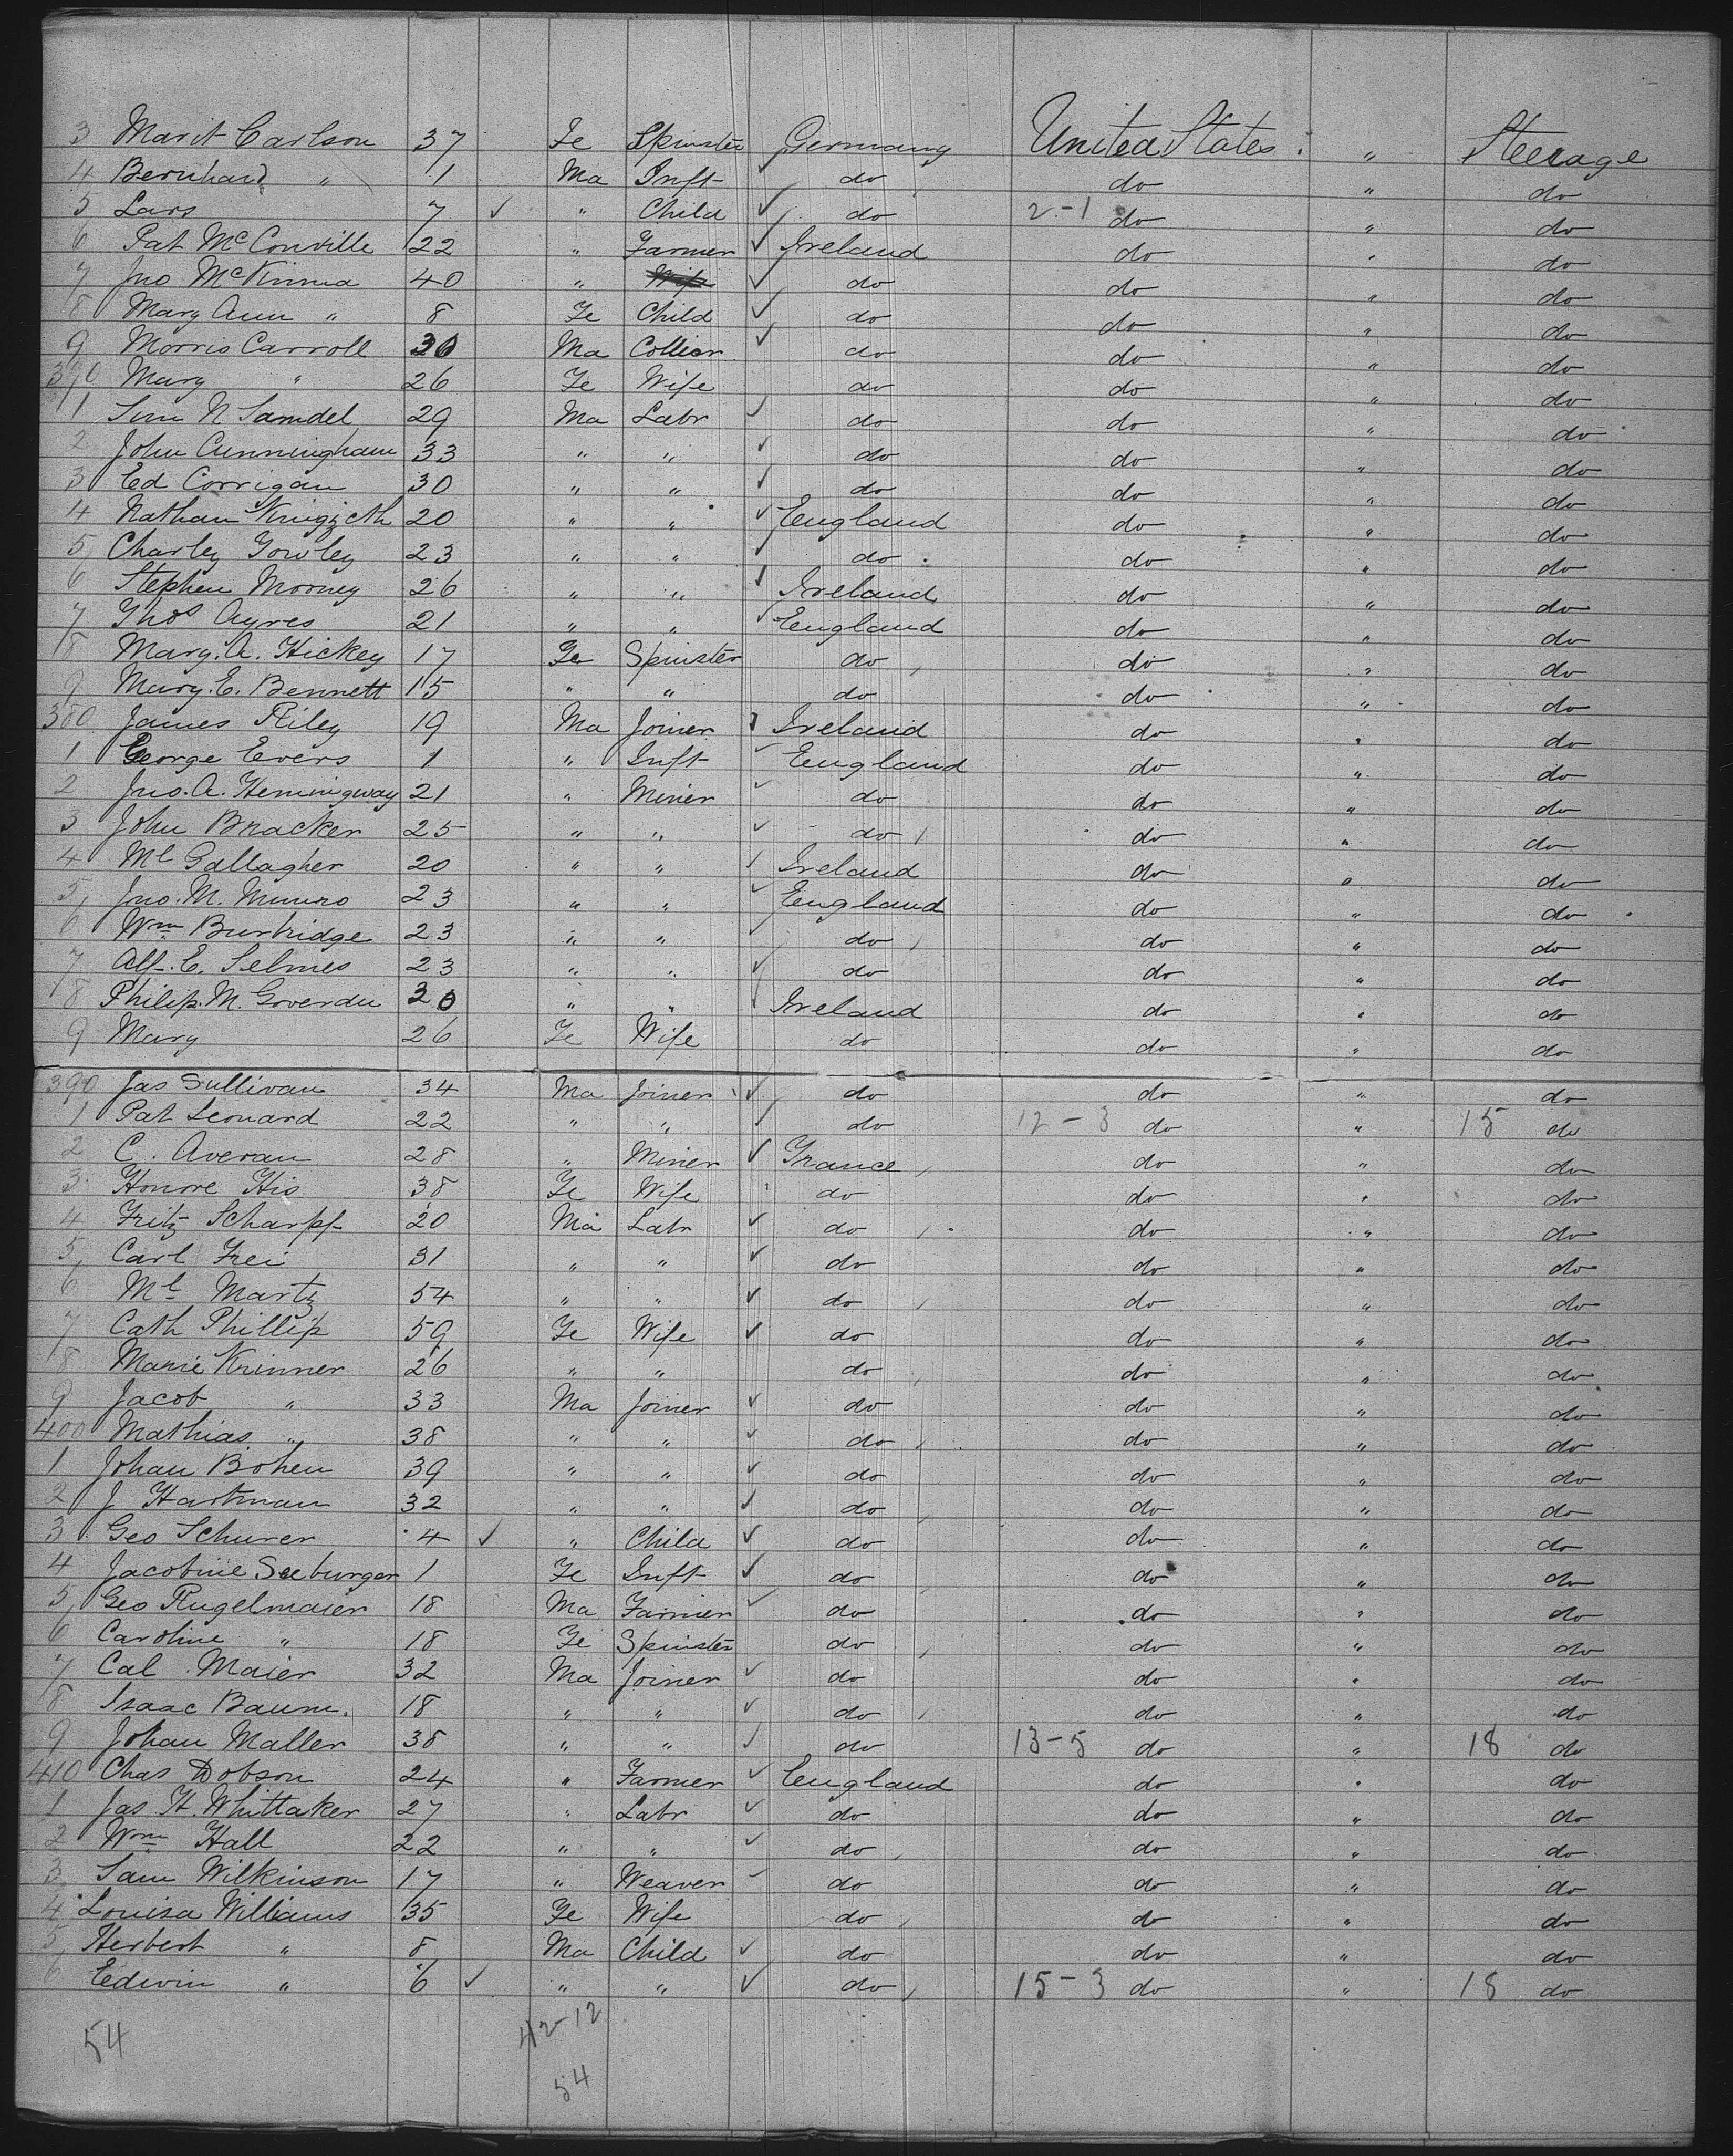 3 Marit Carlson 37 Fe Spinster Germany United States " Steerage
4 Bernhard " 1 Ma Inft do do " do
5 Lars 7 ✓ " Child ✓ do 2-1 do " do
6 Pat McConville 22 " Farmer ✓ Ireland do " do
7 Jno McKinna 40 " Wife ✓ do do " do
8 Mary Ann " 8 Fe Child ✓ do do " do
9 Morris Carroll 30 Ma Collier ✓ do do " do
370 Mary " 26 Fe Wife do do " do
1 Sim N Samdel 29 Ma Labr ✓ do do " do
2 John Cunningham 33 " " ✓ do do " do
3 Ed Corrigan 30 " " ✓ do do " do
4 Nathan 20 " " ✓ England do " do
5 Charley Gowley 23 " " ✓ do do " do
6 Stephen Mooney 26 " " ✓ Ireland do " do
7 Thos Ayres 21 " " ✓ England do " do
8 Mary. A. Hickey 17 Fe Spinster do do " do
9 Mary. E. Bennett 15 " " do do " do
380 James Riley 19 Ma Joiner ✓ Ireland do " do
1 George Evers 1 " Inft ✓ England do " do
2 Jno. A. Hemingway 21 " Miner ✓ do do " do
3 John Bracker 25 " " ✓ do do " do
4 Ml Gallagher 20 " " ✓ Ireland do " do
5 Jno. M. Munro 23 " " ✓ England do " do
6 Wm Burbridge 23 " " ✓ do do " do
7 Alf. E. Selmes 23 " " ✓ do do " do
8 Philip. M. Goverdu 30 " " ✓ Ireland do " do
9 Mary 26 Fe Wife do do " do
390 Jas Sullivan 34 Ma Joiner ✓ do do " do
1 Pat Leonard 22 " " ✓ do 12-3 do " 15 do
2 C. Averan 28 " Miner ✓ France do " do
3 Honore His 38 Fe Wife do do " do
4 Fritz Scharpf 20 Ma Labr ✓ do do " do
5 Carl Frei 31 " " ✓ do do " do
6 Ml Martz 54 " " ✓ do do " do
7 Cath Phillip 59 Fe Wife ✓ do do " do
8 Marie Krinner 26 " " do do " do
9 Jacob " 33 Ma Joiner ✓ do do " do
400 Mathias " 38 " " ✓ do do " do
1 Johan Bohen 39 " " ✓ do do " do
2 J Hartman 32 " " ✓ do do " do
3 Geo Schurer 4 ✓ " Child ✓ do do " do
4 Jacobine Seeburger 1 Fe Inft ✓ do do " do
5 Geo Rugelmaier 18 Ma Farmer ✓ do do " do
6 Caroline " 18 Fe Spinster do do " do
7 Cal Maier 32 Ma Joiner ✓ do do " do
8 Isaac Baum. 18 " " ✓ do do " do
9 Johan Maller 38 " " ✓ do 13-5 do " 18 do
410 Chas Dobson 24 " Farmer ✓ England do " do
1 Jas. H. Whittaker 27 " Labr ✓ do do " do
2 Wm Hall 22 " " ✓ do do " do
3 Sam Wilkinson 17 " Weaver ✓ do do " do
4 Louisa Williams 35 Fe Wife do do " do
5 Herbert " 8 Ma Child ✓ do do " do
6 Edwin " 6 ✓ " " ✓ do 15-3 do " 18 do
42-12
54
54